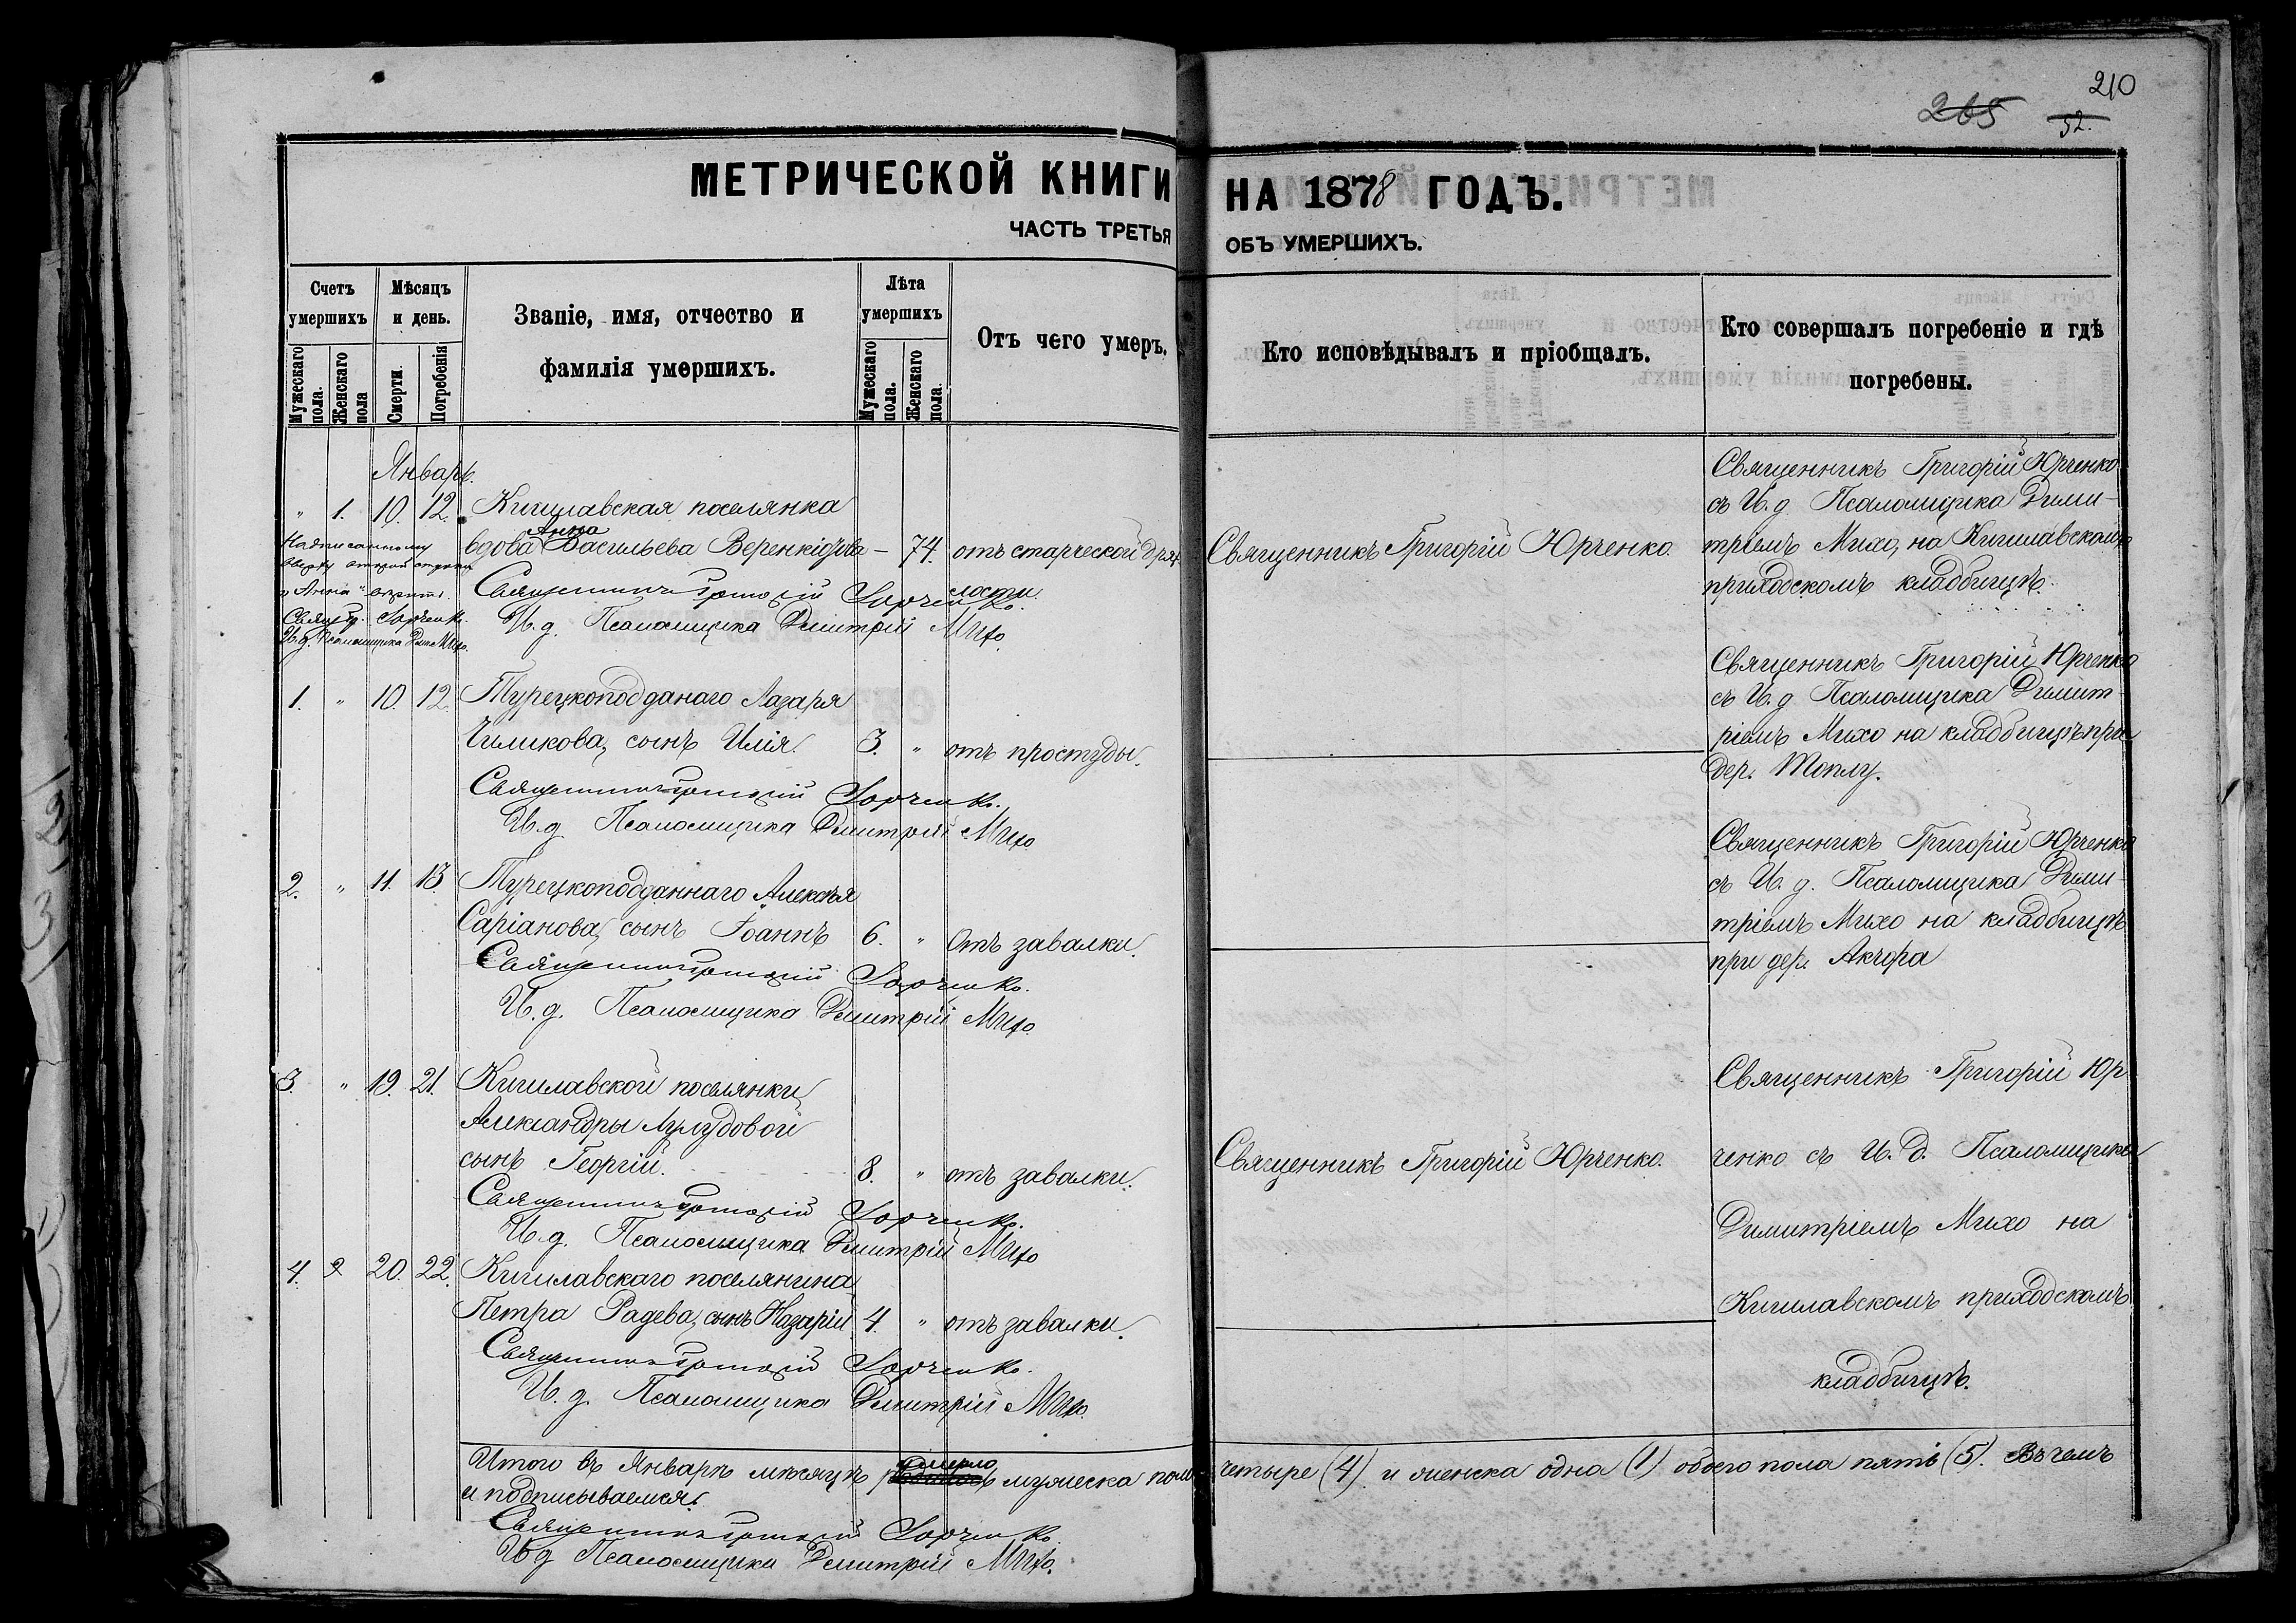 210
265
52.
МЕТРИЧЕСКОЙ КНИГИ НА 1878 ГОДЪ.
ЧАСТЬ ТРЕТЬЯ ОБЪ УМЕРШИХЪ.
Счетъ умершихъ
Мужескаго пола.
Женскаго пола
Мѣсяцъ и день.
Смерти.
Погребенія
Званіе, имя, отчество и
фамилія умершихъ.
Лѣта умершихъ
Мужескаго пола.
Женскаго пола.
Отъ чего умеръ.
Кто исповѣдывалъ и пріобщалъ.
Кто совершалъ погребеніе и гдѣ
погребены.
Январь.
" 1. 10. 12. Кишлавская поселянка
Анна
вдова Васильева – 74. отъ старческой дрях-
лости
Надписанному
сверху
"Анна"
Свящ. Гр. Юрченко.
И. д. Псаломщика Дим. Михо.
Священникъ Григорій Юрченко.
И. д. Псаломщика Димитрій Михо.
Священникъ Григорій Юрченко.
Священникъ Григорій Юрченко
съ И. д. Псаломщика Дими-
тріемъ Михо, на Кишлавскомъ
приходскомъ кладбищѣ.
1. " 10. 12. Турецкоподданаго Лазаря
Чиликова, сынъ Илія. 3. " отъ простуды.
Священникъ Григорій Юрченко.
И. д. Псаломщика Димитрій Михо
Священникъ Григорій Юрченко
съ И. д. Псаломщика Димит-
ріемъ Михо на кладбищѣ при
дер. Топлу.
2. " 11. 13. Турецкоподданнаго Алексѣя
Саріанова, сынъ Іоаннъ 6. " Отъ завалки.
Священникъ Григорій Юрченко.
И. д. Псаломщика Димитрій Михо
Священникъ Григорій Юрченко
съ И. д. Псаломщика Дими-
тріемъ Михо на кладбищѣ
при дер. Акчора
3. " 19. 21. Кишлавской поселянки
Александры Лулудовой
сынъ Георгій. 8. " отъ завалки.
Священникъ Григорій Юрченко.
И. д. Псаломщика Димитрій Михо
Священникъ Григорій Юрченко.
Священникъ Григорій Юр-
ченко съ И. Д. Псаломщика
Димитріемъ Михо на
Кишлавскомъ приходскомъ
кладбищѣ.
4. 2 20. 22. Кишлавскаго поселянина
Петра Радева, сынъ Назарій 4. " отъ завалки.
Священникъ Григорій Юрченко.
И. д. Псаломщика Димитрій Михо.
Итого въ Январѣ мѣсяцѣ умерло мужеска пола четыре (4) и женска одна (1) обоего пола пять (5). Въ чемъ
и подписываемся.
Священникъ Григорій Юрченко
И д Псаломщика Димитрій Михо.